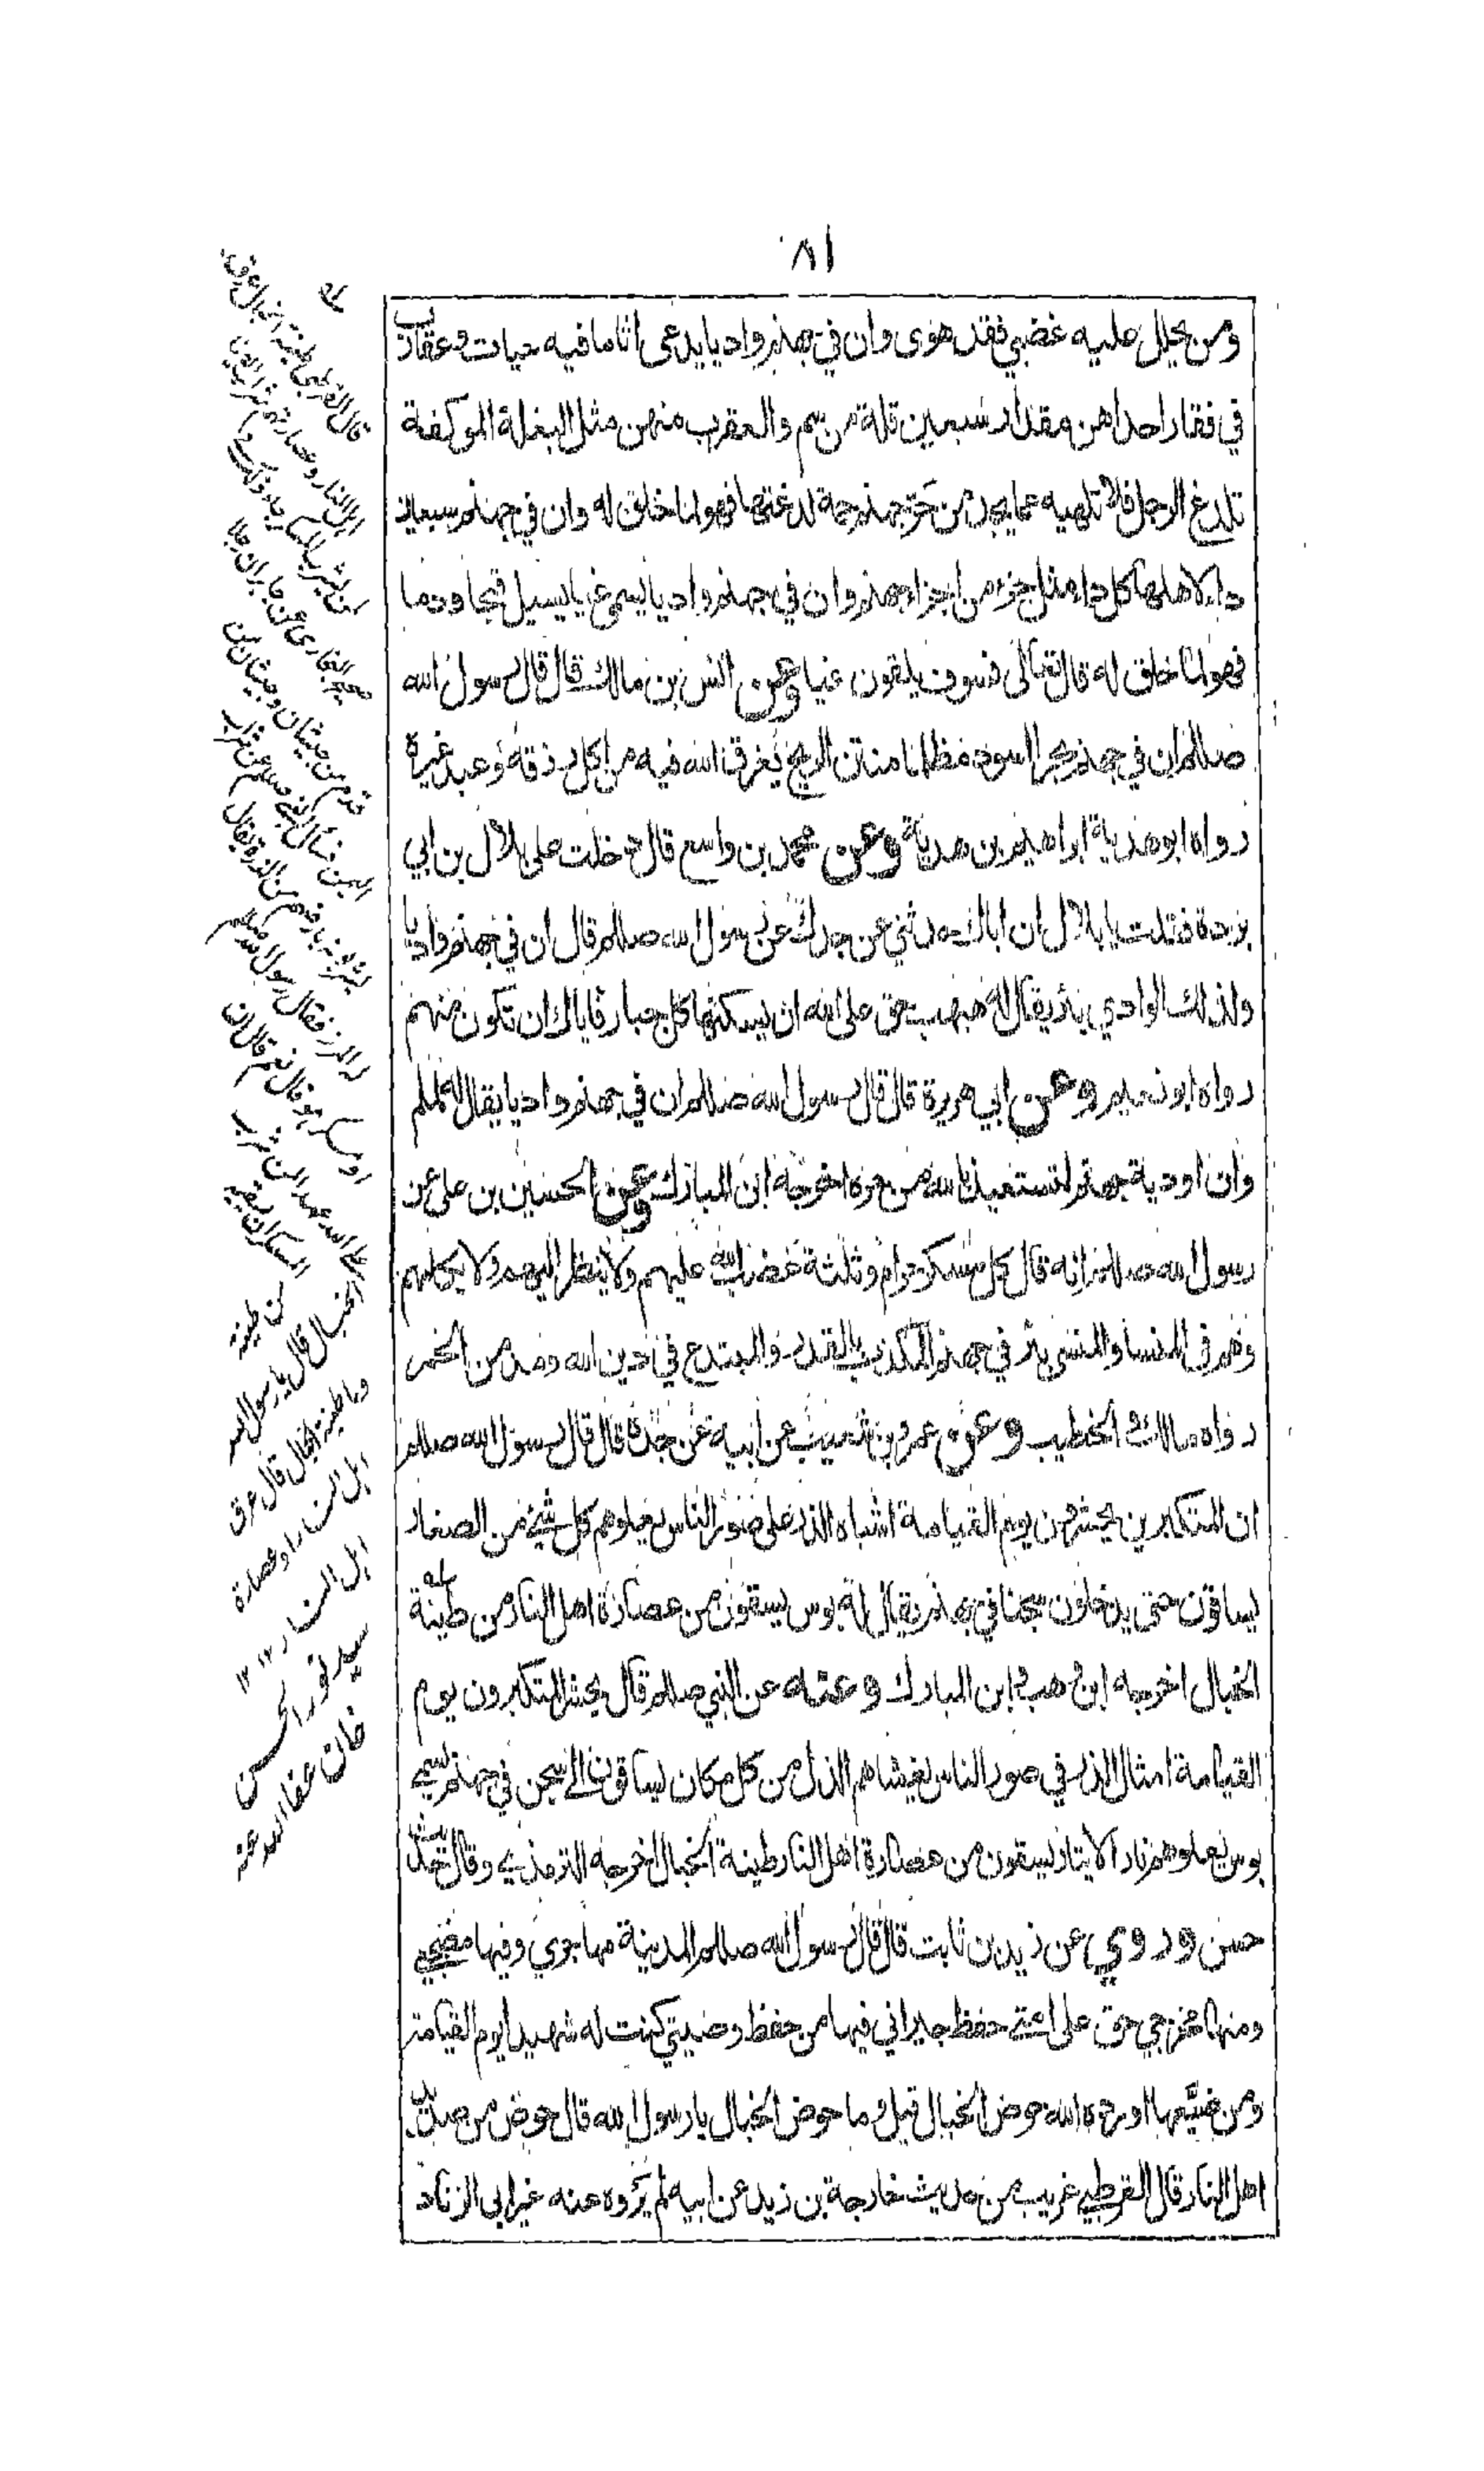 ٨١
ومن يحلل عليه غضبي فقد هوى وان في جهنم واديا يدعى اثاما فيه حيات وعقارب
في فقار احداهن مقدار سبعين قلة من سم والعقرب منهن مثل البغلة الموكفة
تلدغ الرجل فلا تلهيه عما يجد من حر جهنم حمة لدغتها فهو لما خلق له وان في جهنم سبعين
داء لاهلها كل داء مثل جزء من اجزاء جهنم وان في جهنم واديا يسمى غيا يسيل قيحا ودما
فهو لما خلق له قال تعالى فسوف يلقون غيا وعن انس بن مالك قال قال رسول الله
صللم ان في جهنم بحرا اسود مظلما منتن الريح يغرق الله فيه من اكل رزقه وعبد غيره
رواه ابو هدبة ابراهيم بن هدبة وعن محمد بن واسع قال دخلت على بلال بن ابي
بردة فقلت يا بلال ان اباك حدثني عن جدك عن رسول الله صللم قال ان في جهنم واديا
ولذلك الوادي بئر يقال له هبهب حق على الله ان يسكنها كل جبار فاياك ان تكون منهم
رواه ابو نعيم وعن ابي هريرة قال قال رسول الله صللم ان في جهنم واديا يقال له لملم
وان اودية جهنم لتستعيذ بالله من حره اخرجه ابن المبارك وعن الحسين بن علي عن
رسول الله صللم انه قال كل مسكر حرام وثلثة غضب الله عليهم ولا ينظر اليهم ولا يكلمهم
وهم في المنسا والمنسى بئر في جهنم المكذب بالقدر والمبتدع في دين الله ومدمن الخمر
رواه مالك و الخطيب وعن عمرو بن شعيب عن ابيه عن جده قال قال رسول الله صللم
ان المتكبرين يحشرون يوم القيامة اشباه الذر على صور الناس يعلوهم كل شيء من الصغار
يساقون حتى يدخلون سجنا في جهنم يقال له بوس يسقون من عصارة اهل النار من طينة
الخبال اخرجه ابن وهب و ابن المبارك وعنه عن النبي صللم قال يحشر المتكبرون يوم
القيامة امثال الذر في صور الناس يغشاهم الذل من كل مكان يساقون الى سجن في جهنم يسمى
بوس يعلوهم نار الانيار يسقون من عصارة اهل النار طينة الخبال اخرجه الترمذي وقال حديث
حسن وروي عن زيد بن ثابت قال قال رسول الله صللم المدينة مهاجري وفيها مضجعي
ومنها مخرجي حق على امتي حفظ جيراني فيها من حفظ وصيتي كنت له شهيدا يوم القيامة
ومن ضيعها اورده الله حوض الخبال قيل وما حوض الخبال يا رسول الله قال حوض من صديد
اهل النار قال القرطبي غريب من حديث خارجة بن زيد عن ابيه لم يروه عنه غير ابي الزناد
له
قال القرطبي طينة الخبال عرق
اهل النار وعصارتهم
صحيح البخاري عن جابر ان رجلا
قدم من جيشان وجيشان من
اليمن فسأل النبي صلعم عن شراب
يشربونه بارضهم من الذرة يقال
له المزر فقال رسول الله صلعم
او مسكر هو قال نعم قال ان
على الله عهدا لمن شرب
المسكر ان يسقيه
من طينة
الخبال قال يا رسول الله
وما طينة الخبال قال عرق
اهل النار او عصارة
اهل النار ١٢
سيد نور الحسن
خان عفا الله عنه